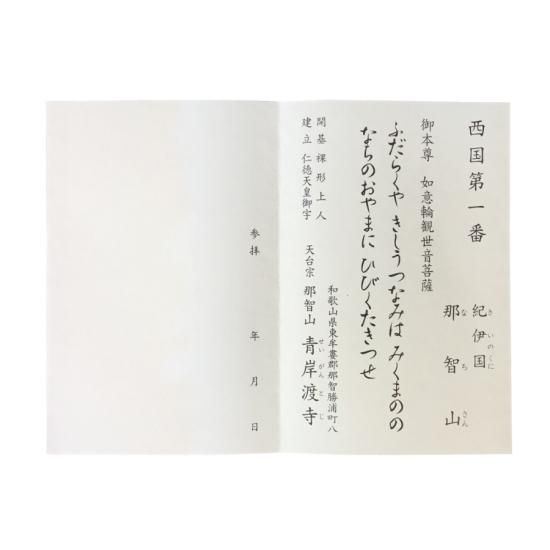 西国第一番
紀伊国
きいのくに
那智山
なちさん
御本尊 如意輪観世音菩薩
ふだらくや きしうつなみは みくまのの
なちのおやまに ひびくたきつせ
開基 裸形上人
建立 仁徳天皇御宇
和歌山県東牟婁郡那智勝浦町八
天台宗 那智山 青岸渡寺
せいがんとじ
参拝 年 月 日